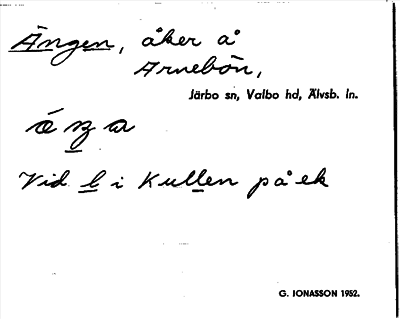 Ängen, åker å
Arnebön,
Järbo sn, Valbo hd, Älvsb. ln.
Vid l i Kullen på ek
G. IONASSON 1952.